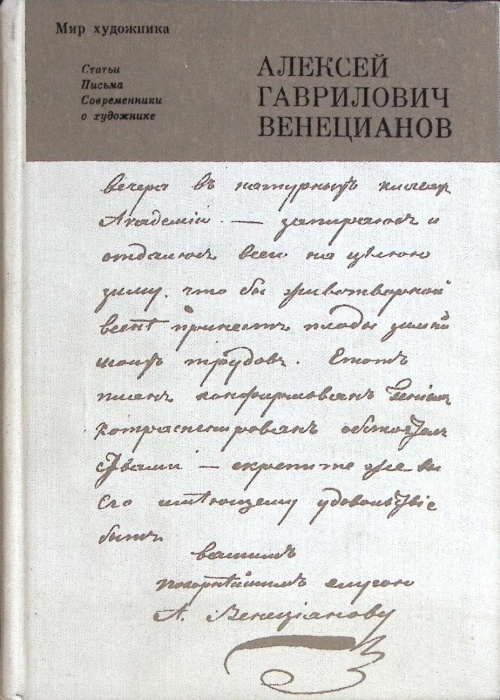 Мир художника
Статьи
Письма
Современники
о художнике
АЛЕКСЕЙ
ГАВРИЛОВИЧ
ВЕНЕЦИАНОВ
вечера въ натурныхъ классах
Академіи — запираюсь и
отдаюсь весь на целую
зиму, что бы животворной
весне принесть плоды зимних
моихъ трудовъ. Етотъ
планъ конфирмованъ
контрасигнированъ обстоятель
ствами — скрепите же вы
его имеющему удовольствіе
быть
вашимъ
покорнейшимъ слугою
А. Венеціановъ